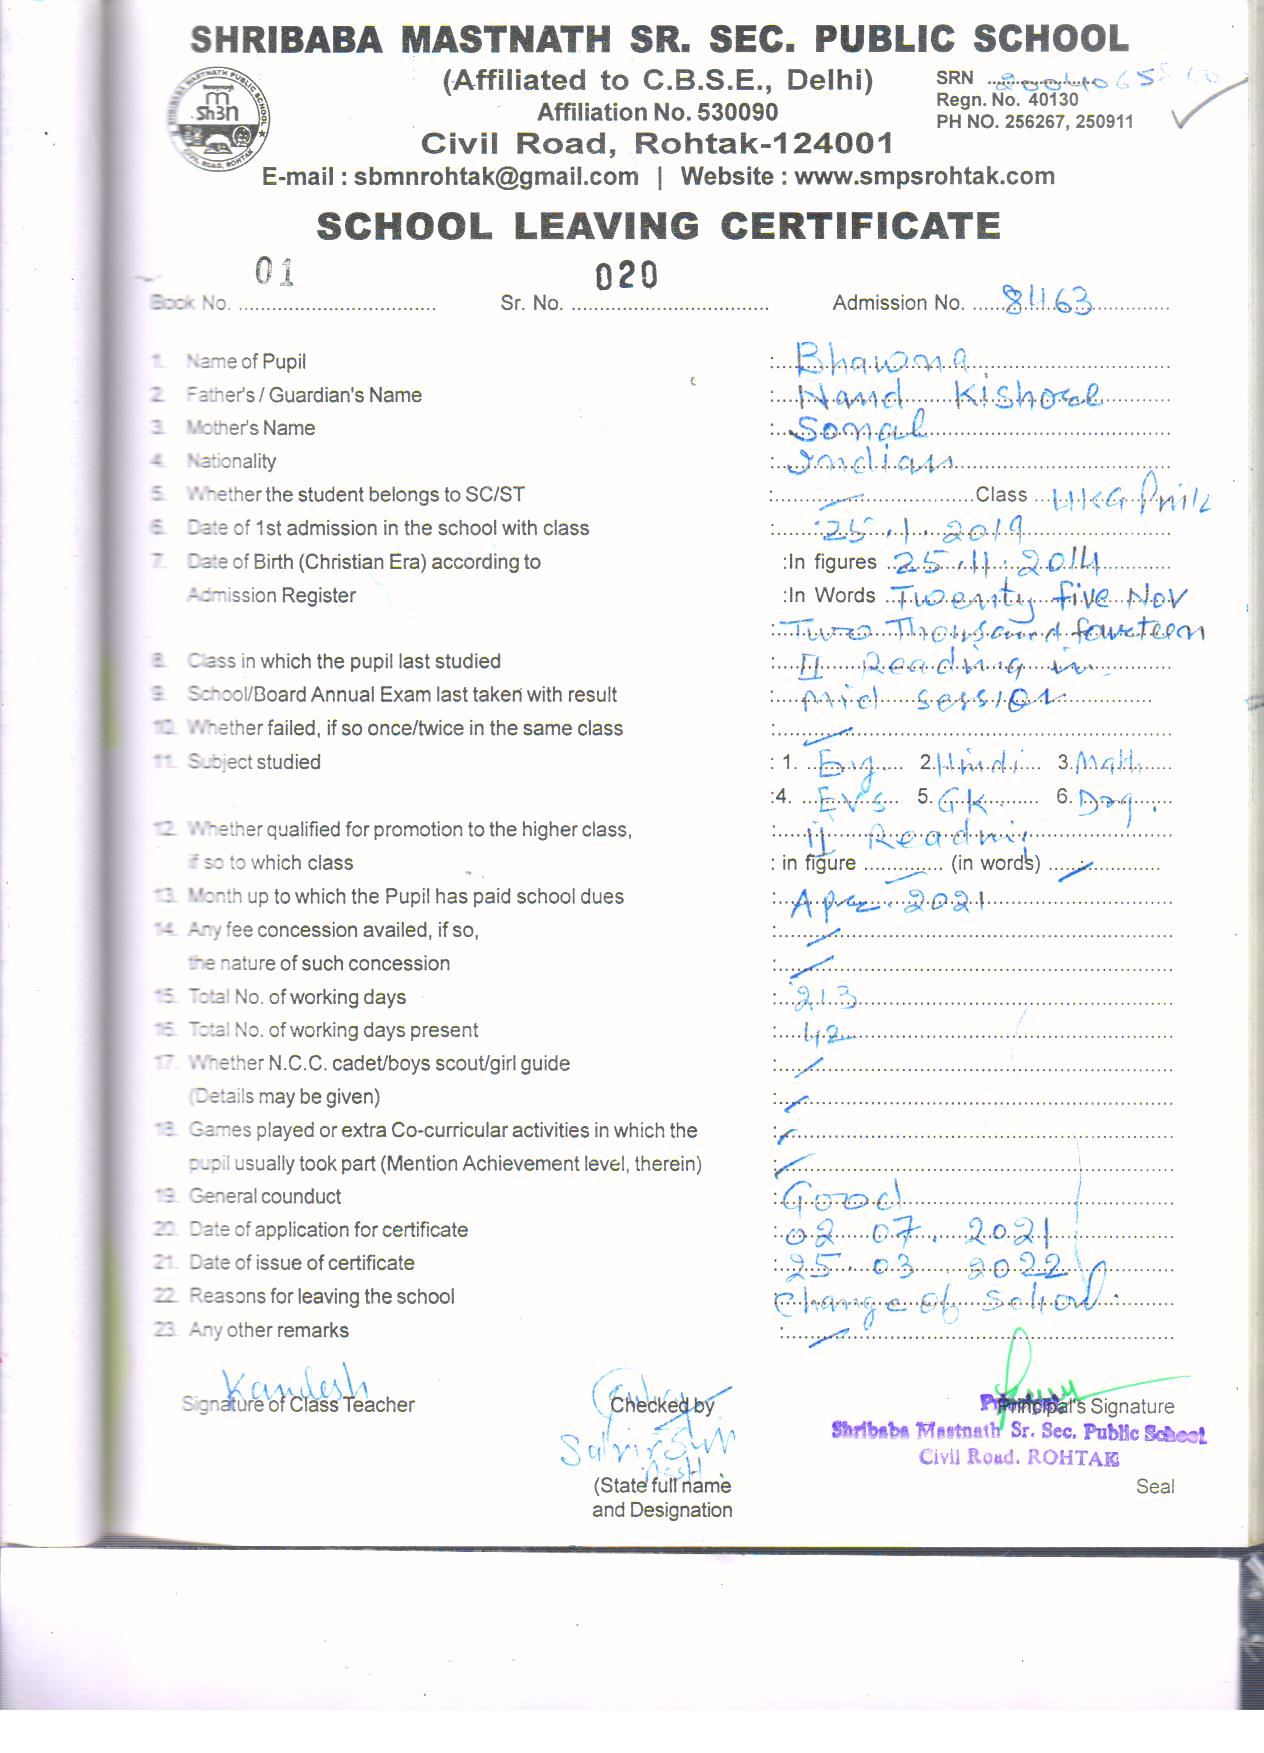 SHRIBABA MASTNATH SR. SEC. PUBLIC SCHOOL
(Affiliated to C.B.S.E., Delhi)
SRN
Affiliation No. 530090
Regn. No. 40130
Civil Road, Rohtak-124001
PH NO. 256267, 250911
E-mail : sbmnrohtak@gmail.com | Website : www.smpsrohtak.com
SCHOOL LEAVING CERTIFICATE
Book No. 01 Sr. No. 020 Admission No. 8463
1. Name of Pupil : Bhawna
2. Father's / Guardian's Name : Nand Kishore
3. Mother's Name :
4. Nationality : Indian
5. Whether the student belongs to SC/ST : Class UKG
6. Date of 1st admission in the school with class : 25.1.2019
7. Date of Birth (Christian Era) according to :In figures 25.11.2014
Admission Register :In Words Twenty five Nov
: Two Thousand fourteen
8. Class in which the pupil last studied : II Reading in
9. School/Board Annual Exam last taken with result : Mid session
10. Whether failed, if so once/twice in the same class :
11. Subject studied : 1. Eng 2. Hindi 3. Math
:4. EVS 5. GK 6. Dog.
12. Whether qualified for promotion to the higher class, : II Reading
if so to which class : in figure (in words)
13. Month up to which the Pupil has paid school dues : Apr. 2021
14. Any fee concession availed, if so, :
the nature of such concession :
15. Total No. of working days : 213
16. Total No. of working days present : 42
17. Whether N.C.C. cadet/boys scout/girl guide :
(Details may be given) :
18. Games played or extra Co-curricular activities in which the :
pupil usually took part (Mention Achievement level, therein) :
19. General counduct : Good
20. Date of application for certificate : 02.07.2021
21. Date of issue of certificate : 25.03.2022
22. Reasons for leaving the school : Change of School
23. Any other remarks :
Signature of Class Teacher Checked by Principal's Signature
Shribaba Mastnath Sr. Sec. Public School
Civil Road. ROHTAK
(State full name Seal
and Designation